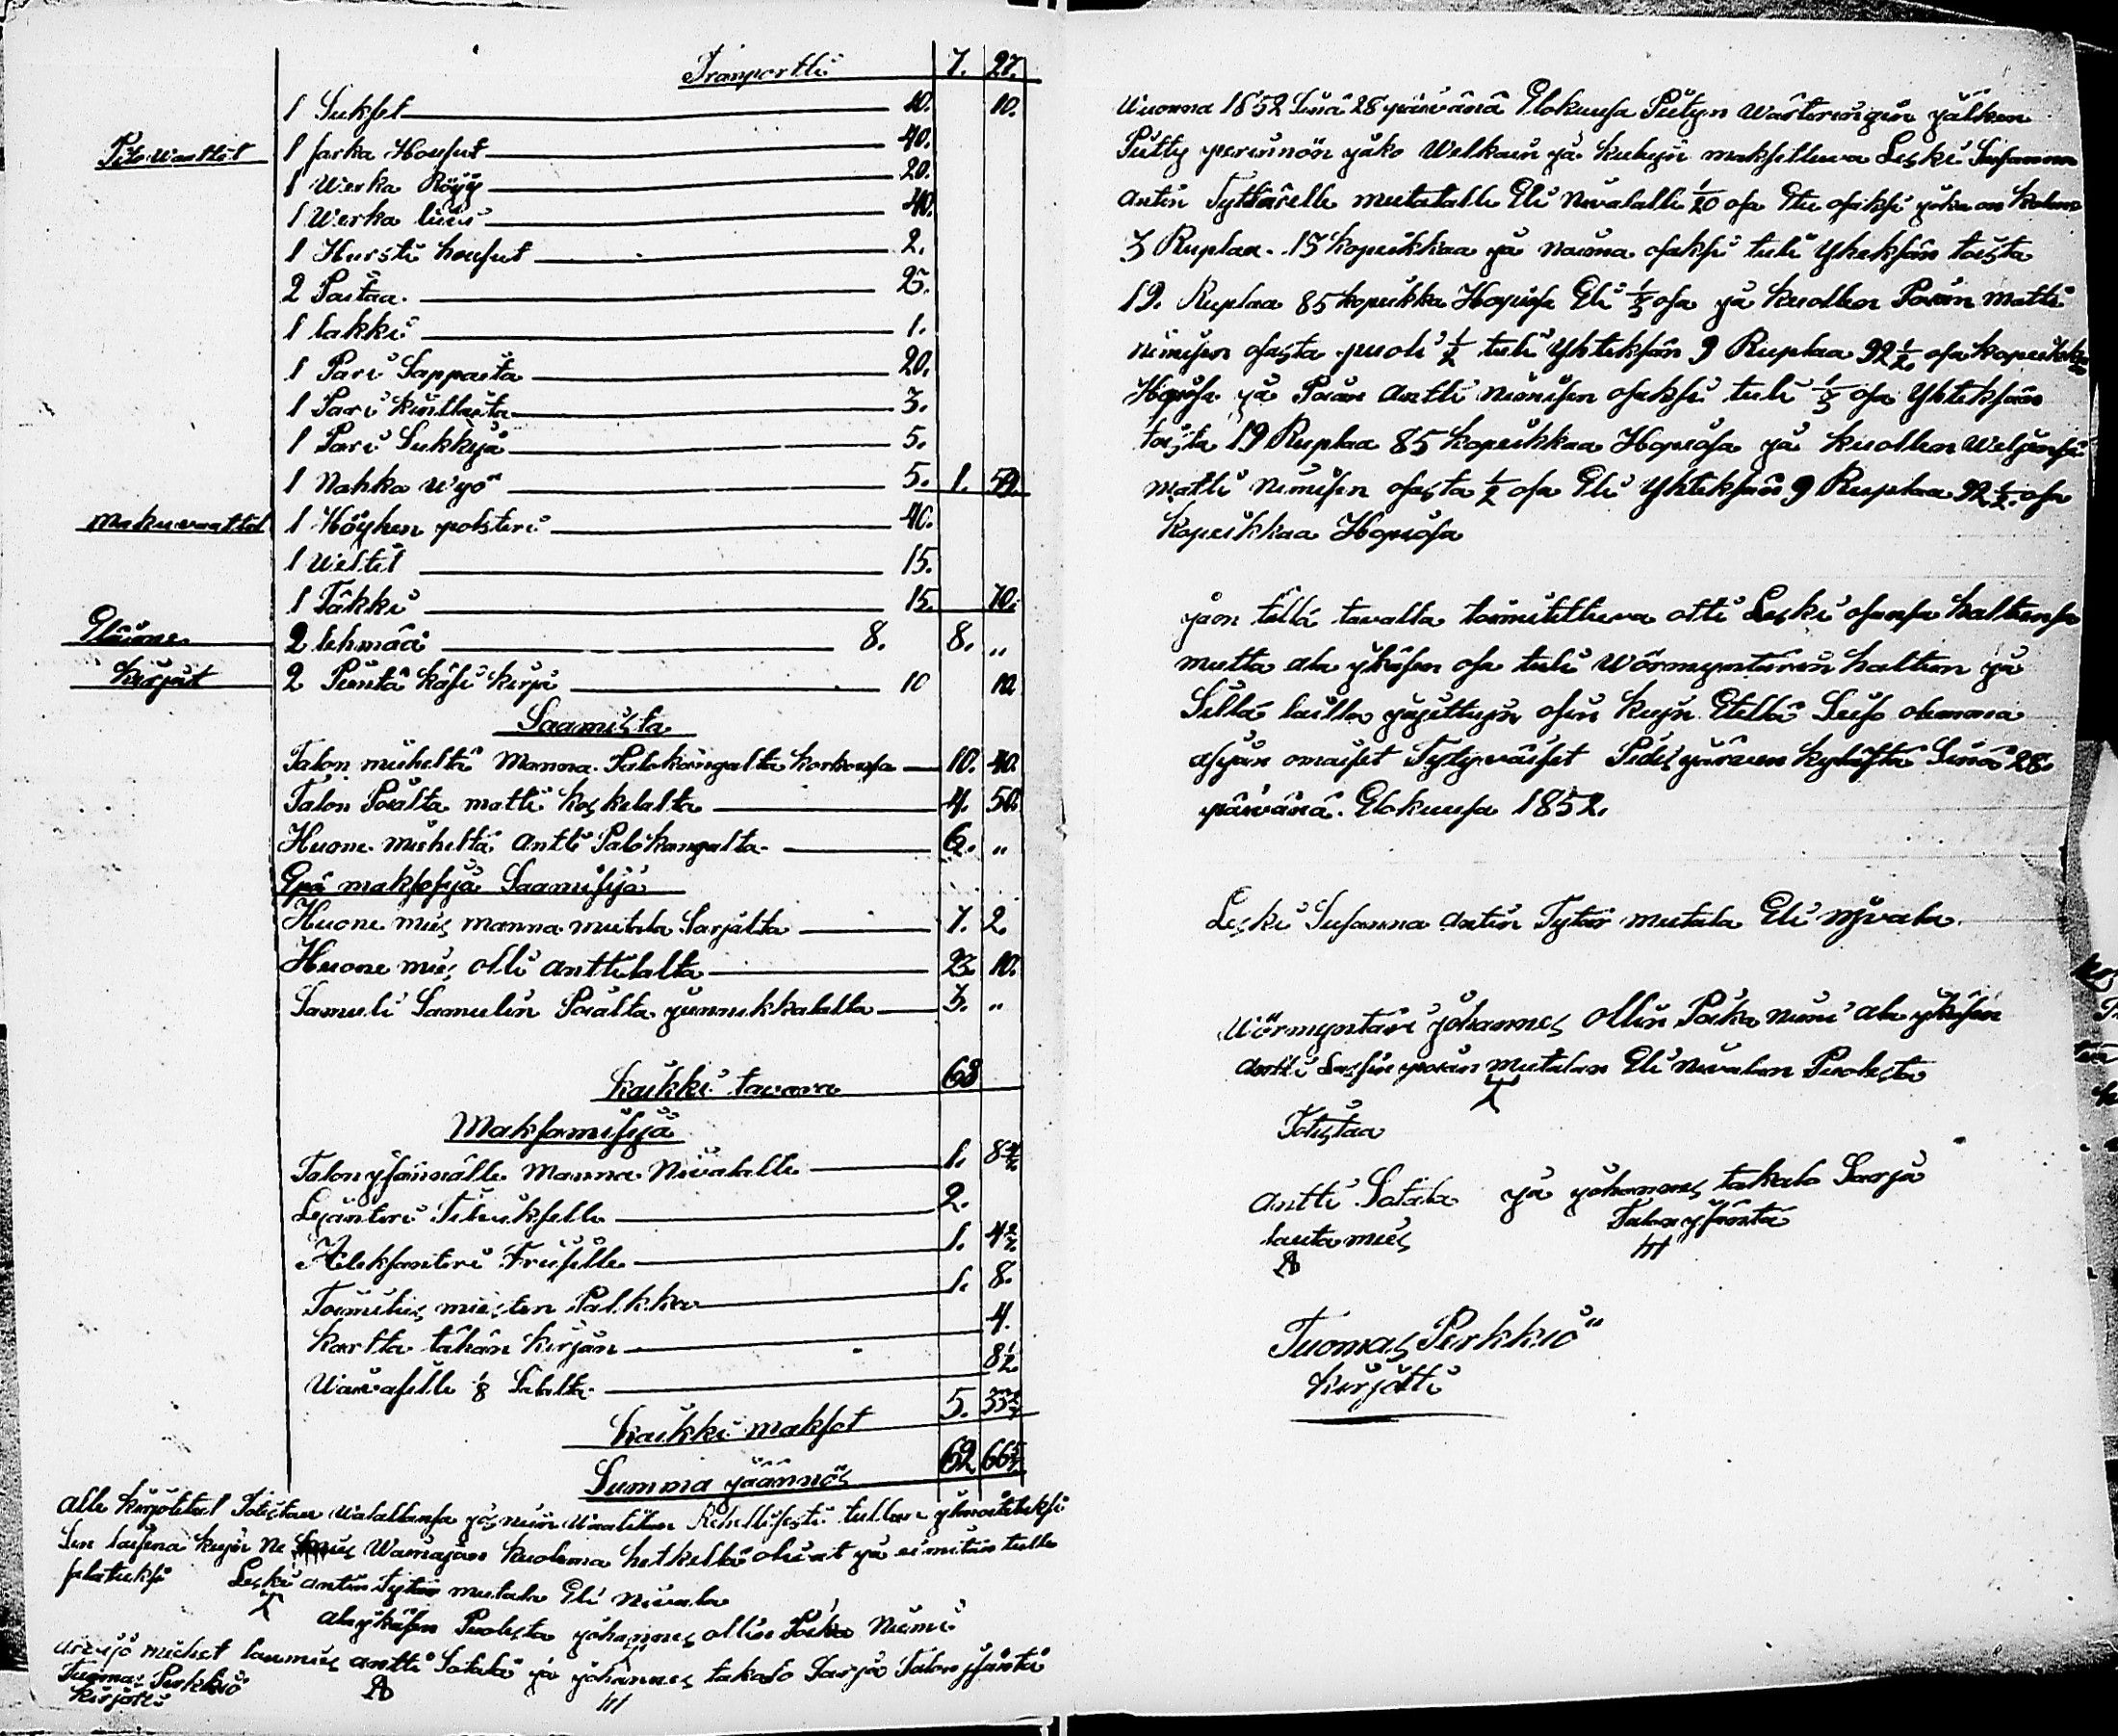 Tranportti 7. 27.
1 Sukset 10. 10.
Pito waattet 1 sarka Housut 40.
1 Werka Röyy 20.
1 Werka liivi 40.
1 Hursti housut 2.
2 Paitaa. 25.
1 lakki 1.
1 Pari Sappaita 20.
1 Pari kintaita 3.
1 Pari Sukkija 5.
1 Nahka wyö 5. 1. 59.
Maku waattet 1 Höyhen polsteri 40.
1 Weltit 15.
1 Täkki 15. 70.
Eläime 2 lehmää 8. 8. „
Kirjat 2 Pientä käsi kirja 10 10.
Saamista
Talon mieheltä Manna Palokangalta korkonsa 10. 40.
Talon Poialta matti koskelalta 4. 50.
Huone mieheltä Antti Palokangalta 6. „
Epä maksosija Saamisija
Huone mies manna mutala Sarjalta 7. 2.
Huone mies olli anttilalta 23. 10.
Samuli Samulin Poialta junnikkalalta 3. „
Kaikki tavara 68
Maksamisija
Talon ysännälle Manna Nivalalle 1. 8 4/7
Lejanteri Tiliukselle 2.
Aleksanteri Friiselle 1. 4 2/7
Toimitus miesten Palkka 1. 8.
Kartta tähän kirjan 4.
Waivasille 1/8 Salolta 8 1/2
Kaikki maksot 5. 33 2/7
Summa jäännös 62 66 5/7
alle kirjotetut Totistaa Walallansa jos niin Waaditan Rehellisesti tullen ylmoitetuksi
Sen laisena kuin ne Wainajan kuolema hetkellä olivat ja ei mitän tulle
salatuksi Leski antin Tytär mutala Eli Nivala
alaykäisen Puolesta johannes ollin Poika Niemi
arvijo miehet laumies antti Satala ja johannes takalo Sarja Talon ysäntä
Tuomas Perkkiö A III
Kirjotti
Wuonna 1852 Sinä 28 päivänä Elokuusa Pitetyn Wärteringin jälken
Pitty perinnön jako Welkain ja kulujn maksettuva Leski Susanna
antin Tyttärelle mutalalle Eli Nivalalle 1/20 osa Etu osaksi joka on kolme
3 Ruplaa. 15 kopeikkaa ja naima osaksi tuli Yheksän toista
19. Ruplaa 85 kopeikka Hopiosa Eli 1/3 osa ja kuollen Poian matti
nimisen osasta puoli 1/2 tuli Yhteksän 9 Ruplaa 92 1/2 osa kopeikka
Hopiosa ja Poian Antti nimisen osaksi tuli 1/3 osa Yhteksän
toista 19 Ruplaa 85 kopeikkaa Hopiosa ja kuollen Weljensä
matti nimisen osasta 1/2 osa Eli Yhteksän 9 Ruplaa 92 1/2 osa
kopeikkaa Hopiosa
jaon tällä tavalla toimitettuva otti Leski osansa haltunsa
mutta ala ykäisen osa tuli Wörmyntärin haltun ja
Sillä lailla jajettujn osin kujn Etellä Seiso olemma
asijan omaiset Tytyväiset Pidisjärven kylästä Sinä 28.
päivänä. Elokuusa 1852.
Leski Susanna antin Tytär mutala Eli Nivala.
Wörmyntäri johannes ollin Poika niemi ala ykäisen
antti poian Mutalan Eli Nivalan Puolesta
Totistaa
antti Satala ja johannes takalo Sarja
lautamies Talon ysäntä
A III
Tuomas Perkkiö
Kirjotti